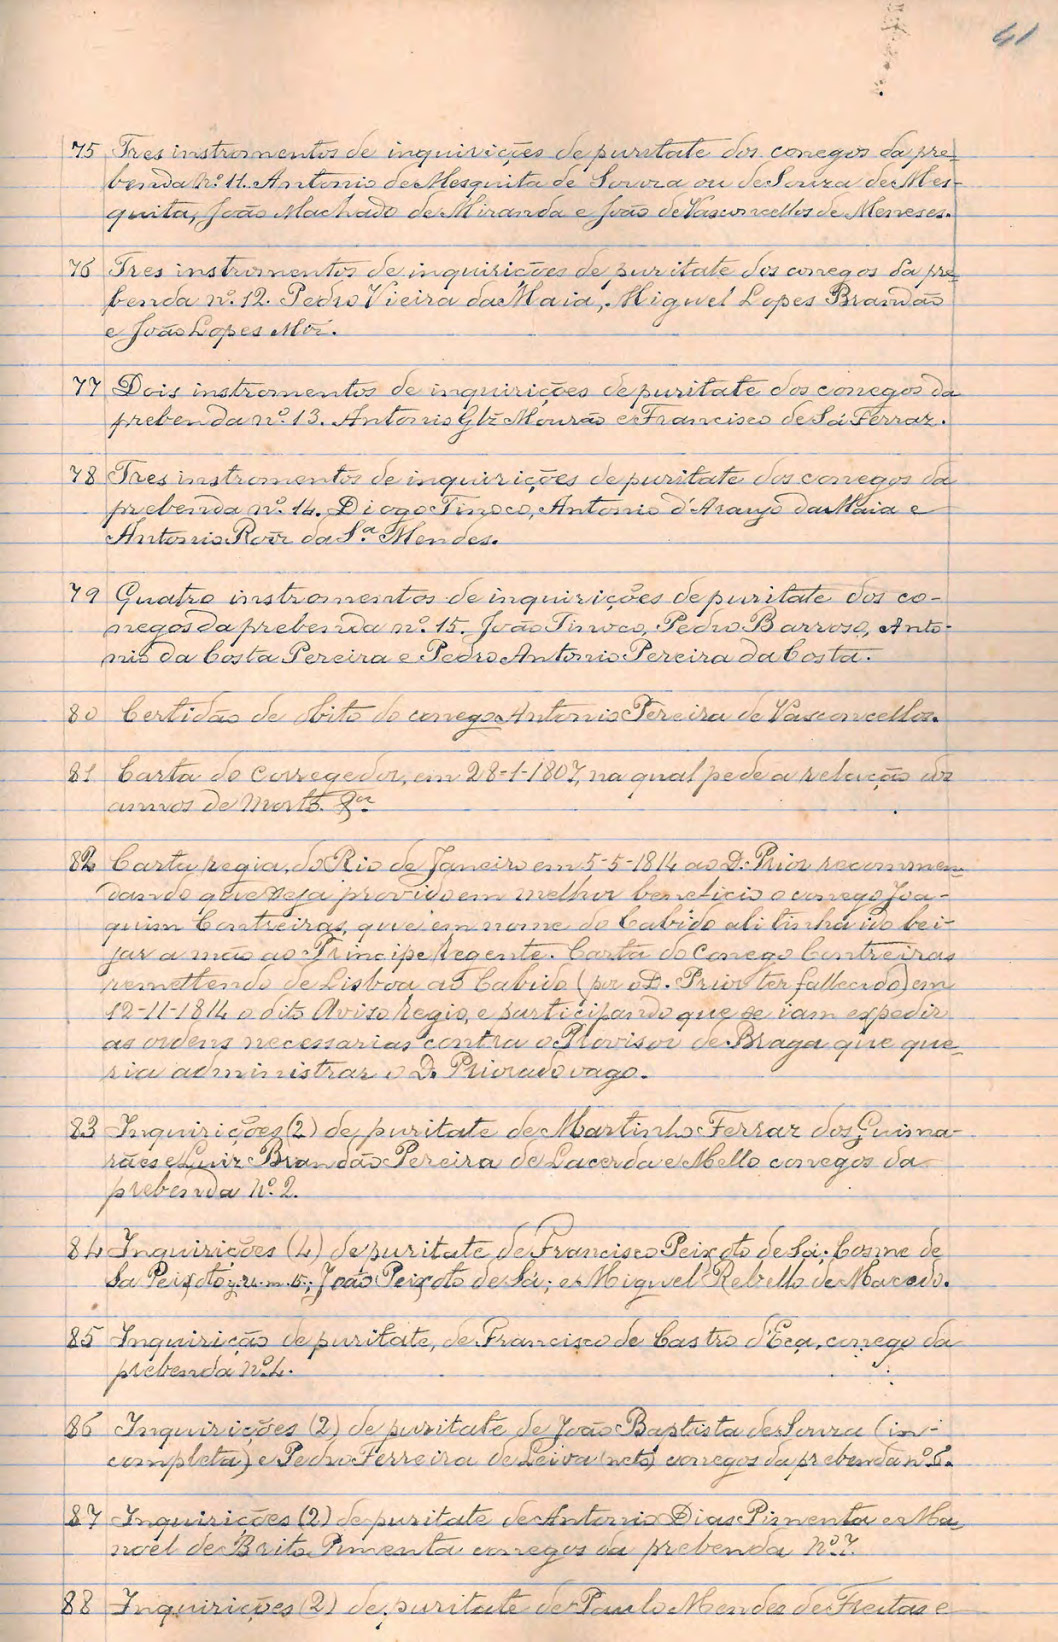 41
75 Tres instromentos de inquirições de puritate dos conegos da pre-
benda nº 11. Antonio de Mesquita de Souza ou de Souza de Mes-
quita, João Machado de Miranda e João de Vasconcellos de Meneses.
76 Tres instromentos de inquirições de puritate dos conegos da pre-
benda nº 12. Pedro Vieira da Maia, Miguel Lopes Brandão
e João Lopes Moz.
77 Dois instromentos de inquirições de puritate dos conegos da
prebenda nº 13. Antonio Glz Mourão e Francisco de Sá Ferraz.
78 Tres instromentos de inquirições de puritate dos conegos da
prebenda nº 14. Diogo Tinoco, Antonio d'Araujo da Maia e
Antonio Roiz da Sª Mendes.
79 Quatro instromentos de inquirições de puritate dos co-
negos da prebenda nº 15. João Tinoco, Pedro Barroso, Anto-
nio da Costa Pereira e Pedro Antonio Pereira da Costa.
80 Certidão de obito do conego Antonio Pereira de Vasconcellos.
81 Carta do corregedor, em 28-1-1807, na qual pede a relação dos
annos de
82 Carta regia, do Rio de Janeiro em 5-5-1814 ao D. Prior recommen-
dando que seja provido em melhor beneficio o conego Joa-
quim Contreiras, que em nome do Cabido ali tinha ido bei-
jar a mão ao Principe Regente. Carta do conego Contreiras
remettendo de Lisboa ao Cabido (por o D. Prior ter fallecido) em
12-11-1814 o dito Aviso Regio, e participando que se iam expedir
as ordens necessarias contra o Provisor de Braga que que-
ria administrar o D. Priorado vago.
83 Inquirições (2) de puritate de Martinho Ferraz dos Guima-
rães e Luiz Brandão Pereira de Lacerda e Mello conegos da
prebenda nº 2.
84 Inquirições (4) de puritate de Francisco Peixoto de Sá; Cosme de
Sa Peixoto; João Peixoto de Sá; e Miguel Rebello de Macedo.
85 Inquirição de puritate, de Francisco de Castro d'Eça, conego da
prebenda nº 4.
86 Inquirições (2) de puritate de João Baptista de Souza (in-
completa) e Pedro Ferreira de Leiva (neto) conegos da prebenda nº 6.
87 Inquirições (2) de puritate de Antonio Dias Pimenta e Ma-
noel de Brito Pimenta conegos da prebenda nº 7.
88 Inquirições (2) de puritate de Paulo Mendes de Freitas e